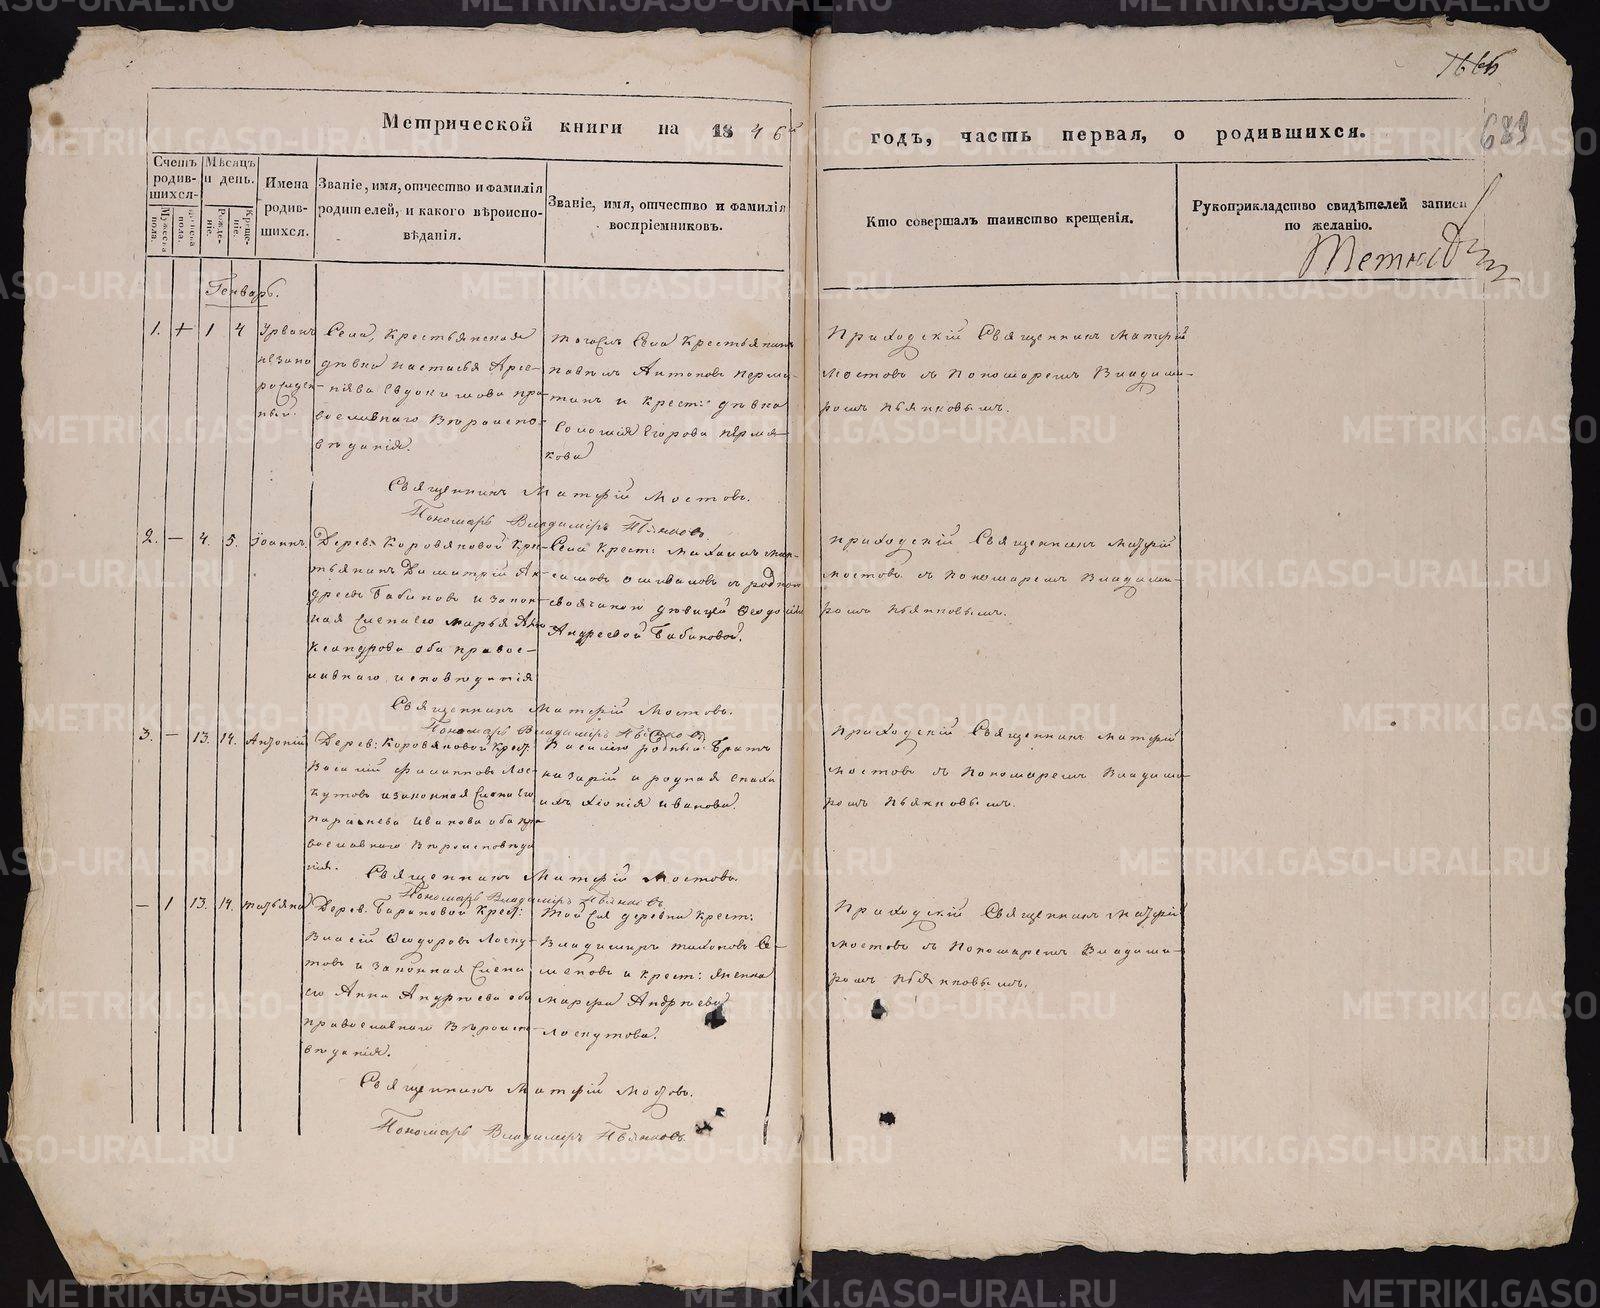 METRIKI.GASO-URAL.RU
683
Метрической книги на 1846й
годъ, часть первая, о родившихся.
Счетъ родив-шихся.
Мужеска пола.
Женска пола.
Мѣсяцъ и день.
Рожде-ніе.
Креще-ніе.
Имена родив-шихся.
Званіе, имя, отчество и фамилія
родителей, и какого вѣроиспо-
вѣданія.
Званіе, имя, отчество и фамилія
воспріемниковъ.
Кто совершалъ таинство крещенія.
Рукоприкладство свидѣтелей записи
по желанію.
Генварь.
1. + 1 4
незако
рожден-
ный.
Села, Крестьянская
дѣвка Настасья Арсе-
Евдокимова пра-
вославнаго Вѣроиспо-
вѣданія.
тогожъ Села Крестьянинъ
Антоновъ Пермя-
и Крест: дѣвка
Соломія Егорова Пермя-
кова
Приходскій Священникъ Матѳій
Мостовъ съ Пономаремъ Влади-
ромъ Пьянковымъ.
Священникъ Матѳій Мостовъ.
Пономарь Владиміръ Пьянковъ.
2. — 4. 5. Іоаннъ.
Дерев: Коровяковой Кре-
тьянинъ Димитрій Ан-
дреевъ Бабиновъ и закон-
ная Жена его Марья Але
ксандрова оба право-
славнаго исповѣданія
Села Крест: Михаилъ Мак-
симовъ съ родной
дѣвицей Ѳеодосіей
Андреевой Бабиновой.
Приходскій Священникъ Матѳій
Мостовъ съ Пономаремъ Влади-
ромъ Пьянковымъ.
Священникъ Матѳій Мостовъ.
Пономарь Владиміръ Пьянковъ
3. — 13. 14. Антоній
Дерев: Коровяковой Крест:
Василій Филиповъ Лос-
кутовъ и законная Жена его
Иванова оба пра
вославнаго Вѣроисповѣда
нія.
Василію родный братъ
Назарій и родная сноха
ихъ Хіонія Иванова.
Приходскій Священникъ Матѳій
Мостовъ съ Пономаремъ Владими-
ромъ Пьянковымъ.
Священникъ Матѳій Мостовъ.
Пономарь Владиміръ Пьянковъ
— 1 13. 14. Татьяна
Дерев: Барановой Крест:
Власій Ѳеодоровъ Лоску-
товъ и законная Жена
его Анна Андреева оба
православнаго Вѣроиспо-
вѣданія.
Той же деревни Крест:
Владимиръ Тихоновъ Се-
меновъ и Крест: янка
Марфа Андреева
Лоскутова.
Приходскій Священникъ Матѳій
Мостовъ съ Пономаремъ Влади-
ромъ Пьянковымъ.
Священникъ Матѳій Мостовъ.
Пономарь Владиміръ Пьянковъ.